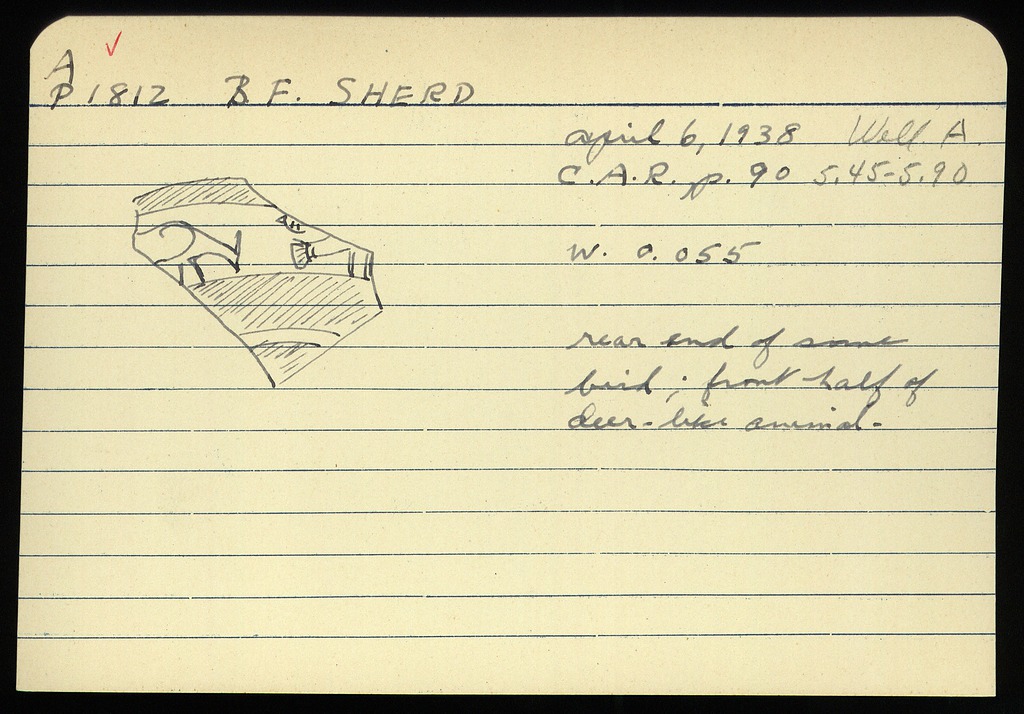 A
P 1812 B F. SHERD
april 6, 1938 Well A.
C.A.R. p. 90 5.45-5.90
W. 0.055
rear end of some
bird; front half of
deer-like animal-